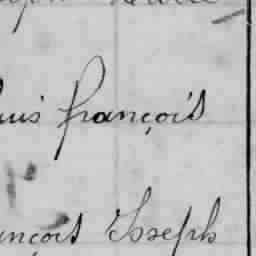 uis françois
nçois Joseph